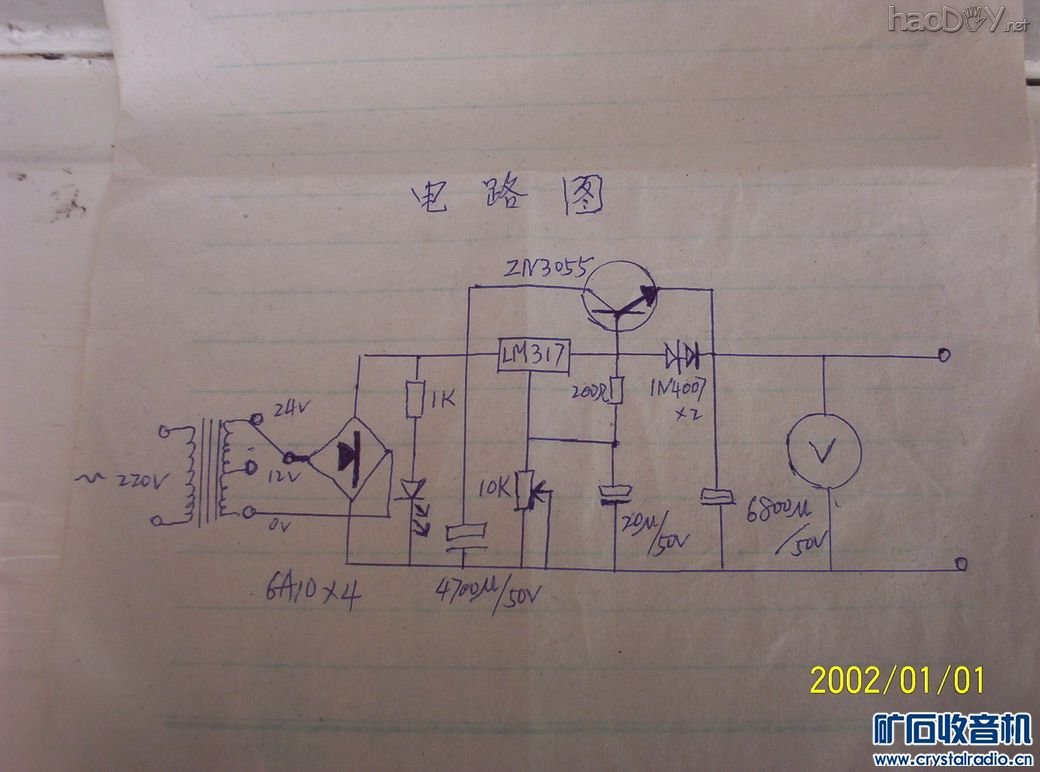 haoDIY.net
电路图
2N3055
LM317
200Ω
1N4007
×2
1K
24V
12V
0V
~220V
10K
V
20μ
/50V
6800μ
/50V
6A10×4
4700μ/50V
2002/01/01
矿石收音机
www.crystalradio.cn